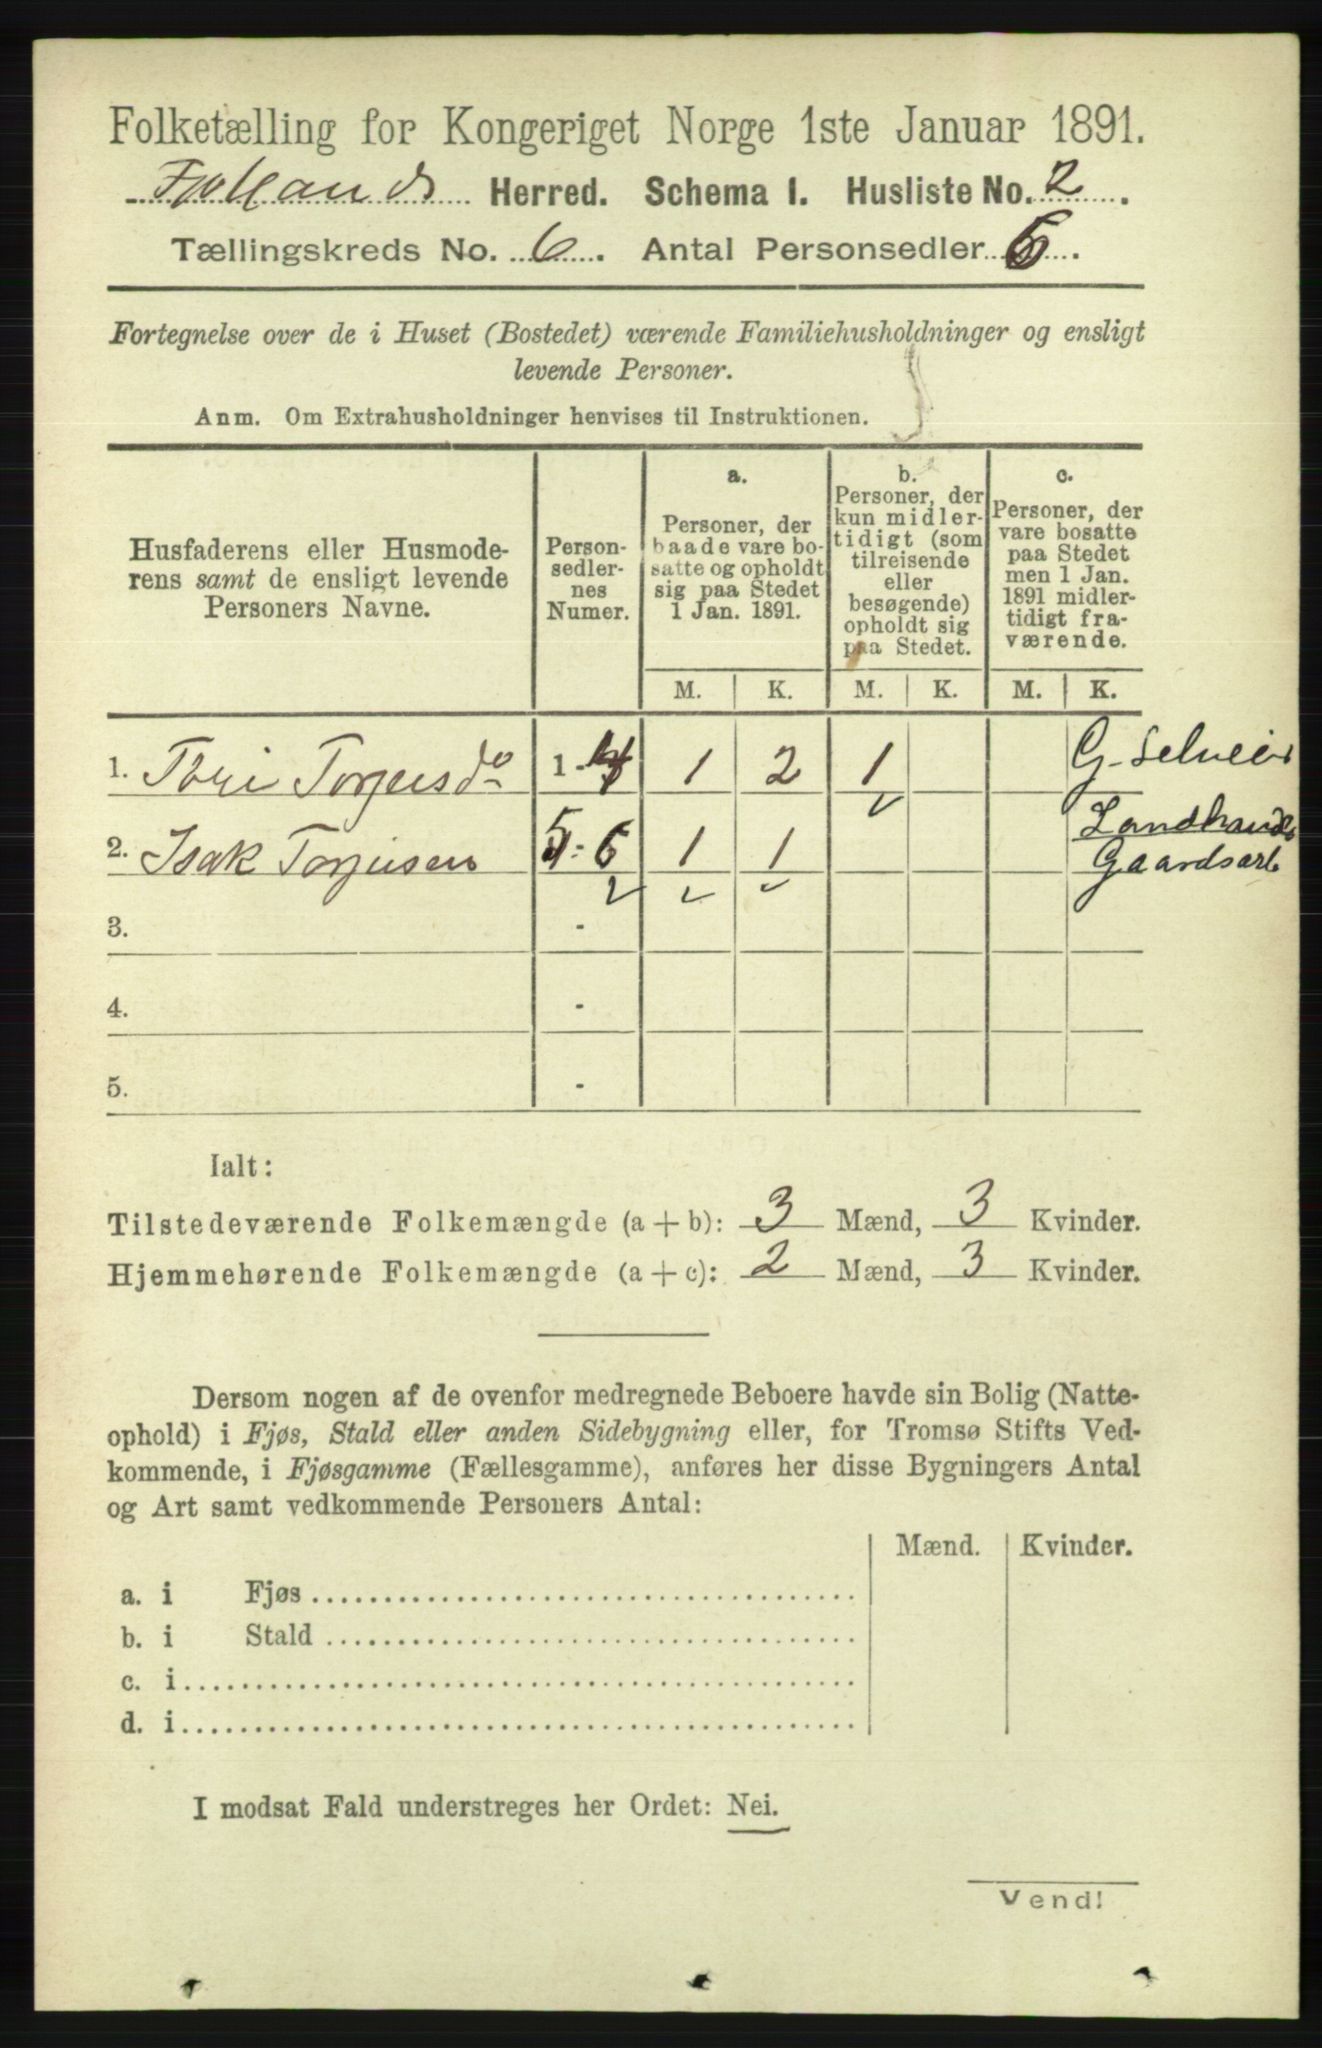 Folketælling for Kongeriget Norge 1ste Januar 1891.
Fjotlands Herred. Schema I. Husliste No. 2.
Tællingskreds No. 6. Antal Personsedler 6.
Fortegnelse over de i Huset (Bostedet) værende Familiehusholdninger og ensligt
levende Personer.
Anm. Om Extrahusholdninger henvises til Instruktionen.
Husfaderens eller Husmode-
rens samt de ensligt levende
Personers Navne.
Person-
sedler-
nes
Numer.
a.
Personer, der
baade vare bo-
satte og opholdt
sig paa Stedet
1 Jan. 1891.
b.
Personer, der
kun midler-
tidigt (som
tilreisende
eller
besøgende)
opholdt sig
paa Stedet.
c.
Personer, der
vare bosatte
paa Stedet
men 1 Jan.
1891 midler-
tidigt fra-
værende.
M. K. M. K. M. K.
1. Tori Torjusdo 1 - 4 1 2 1 G-Selveier
2. Isak Torjusen 5 - 6 1 1 Landhandl
Gaardsarb
3. -
4. -
5. -
Ialt:
Tilstedeværende Folkemængde (a + b): 3 Mænd, 3 Kvinder.
Hjemmehørende Folkemængde (a + c): 2 Mænd, 3 Kvinder.
Dersom nogen af de ovenfor medregnede Beboere havde sin Bolig (Natte-
ophold) i Fjøs, Stald eller anden Sidebygning eller, for Tromsø Stifts Ved-
kommende, i Fjøsgamme (Fællesgamme), anføres her disse Bygningers Antal
og Art samt vedkommende Personers Antal:
Mænd. Kvinder.
a. i Fjøs
b. i Stald
c. i
d. i
I modsat Fald understreges her Ordet: Nei.
Vend!